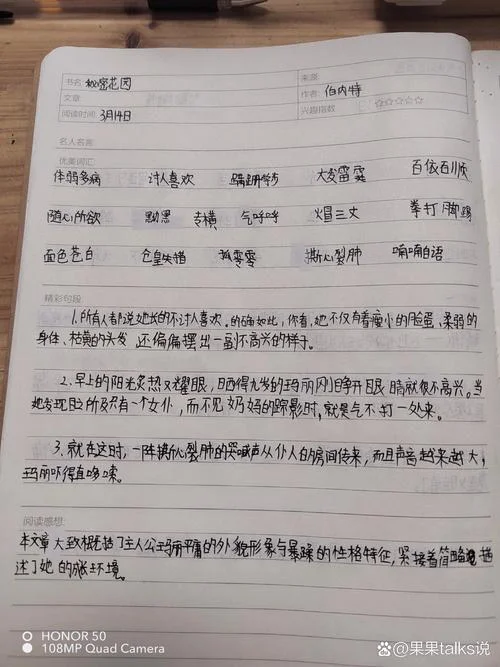 书名: 秘密花园 来源:
文章: 作者: 伯内特
阅读时间: 3月14日 兴趣指数: ☆☆☆☆☆
名人名言
优美词汇
体弱多病 讨人喜欢 蹑手蹑脚 大发雷霆 百依百顺
随心所欲 黝黑 专横 气呼呼 火冒三丈 拳打脚踢
面色苍白 仓皇失措 孤零零 撕心裂肺 喃喃自语
精彩句段
1.所有人都说她长的不讨人喜欢。的确如此,你看,她不仅有着瘦小的脸蛋,柔弱的
身体、枯黄的头发 还偏偏摆出一副不高兴的样子。
2.早上的阳光炙热又耀眼,晒得九岁的玛丽刚睁开眼睛就很不高兴。当
她发现自己所及只有一个女仆,而不见奶妈的踪影时,就是气不打一处来。
3.就在这时,一阵撕心裂肺的哭喊声从仆人的房间传来,而且声音越来越大,
玛丽吓得直哆嗦。
阅读感想:
本文章大致概括了主人公玛丽平庸的外貌形象与暴躁的性格特征,紧接着简略地描
述了她的成长环境。
HONOR 50
108MP Quad Camera
@果果talks说